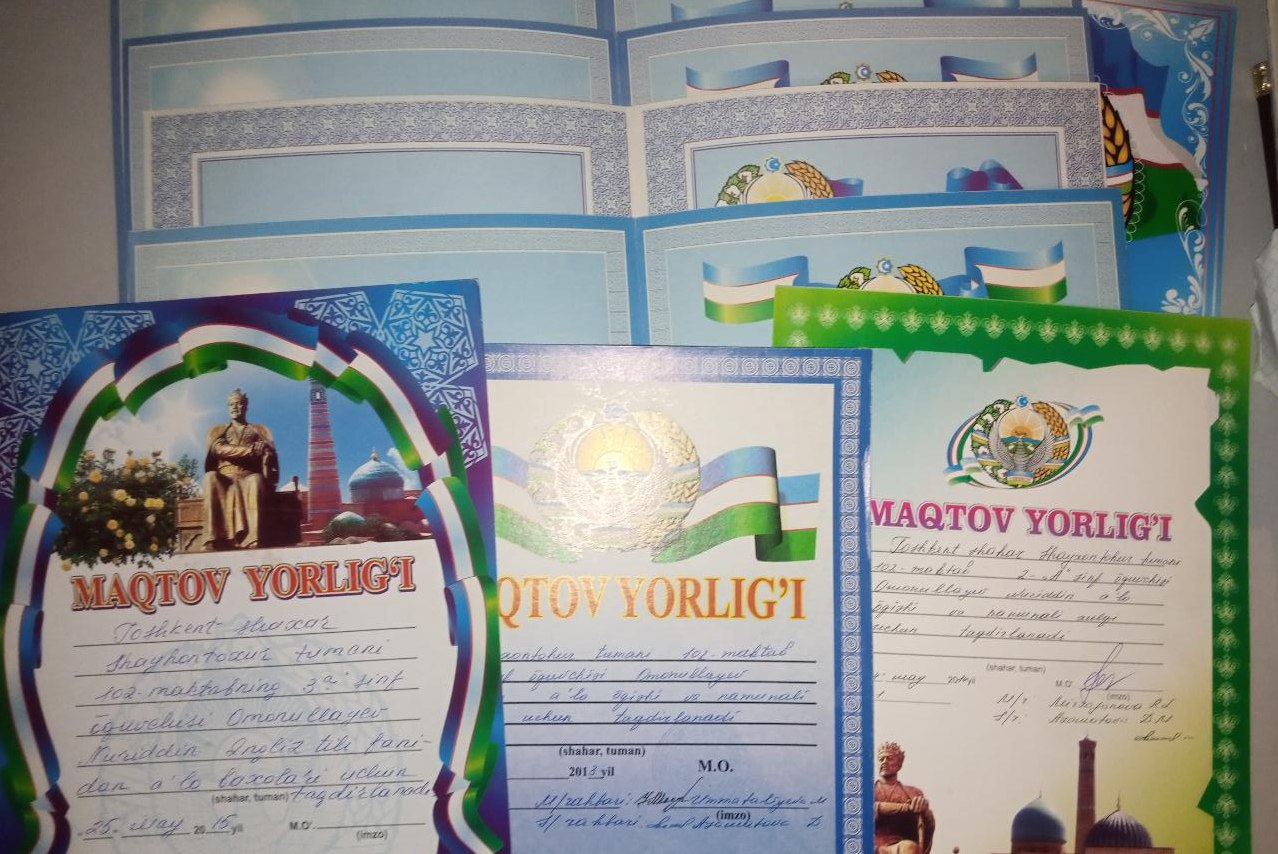 MAQTOV YORLIG'I
Toshkent shaxar
Shayhontoxur tumani
102-maktabning 3"a" sinf
o'quvchisi Omonullayev
Nuriddin Ingliz tili fani-
dan a'lo baxolari uchun
(shahar, tuman) taqdirlanadi
25. may 2015 yil M.O'. (imzo)
QTOV YORLIG'I
xontohur tumani 102-maktab
o'quvchisi Omonullayev
a'lo o'qishi va namunali
uchun taqdirlanadi
(shahar, tuman)
2013 yil M.O.
M/rahbari: Ummataliyeva M
(imzo)
S/rahbari Azamatova D
MAQTOV YORLIG'I
Toshkent shahar Shayxontohur tumani
102-maktab 2-"A" sinf o'quvchisi
Omonullayev Nuriddin a'lo
o'qishi va namunali xulqi
uchun taqdirlanadi
(shahar, tuman)
may 2014 yil M.O'. (imzo)
M/r
S/r: Azamatova D.M